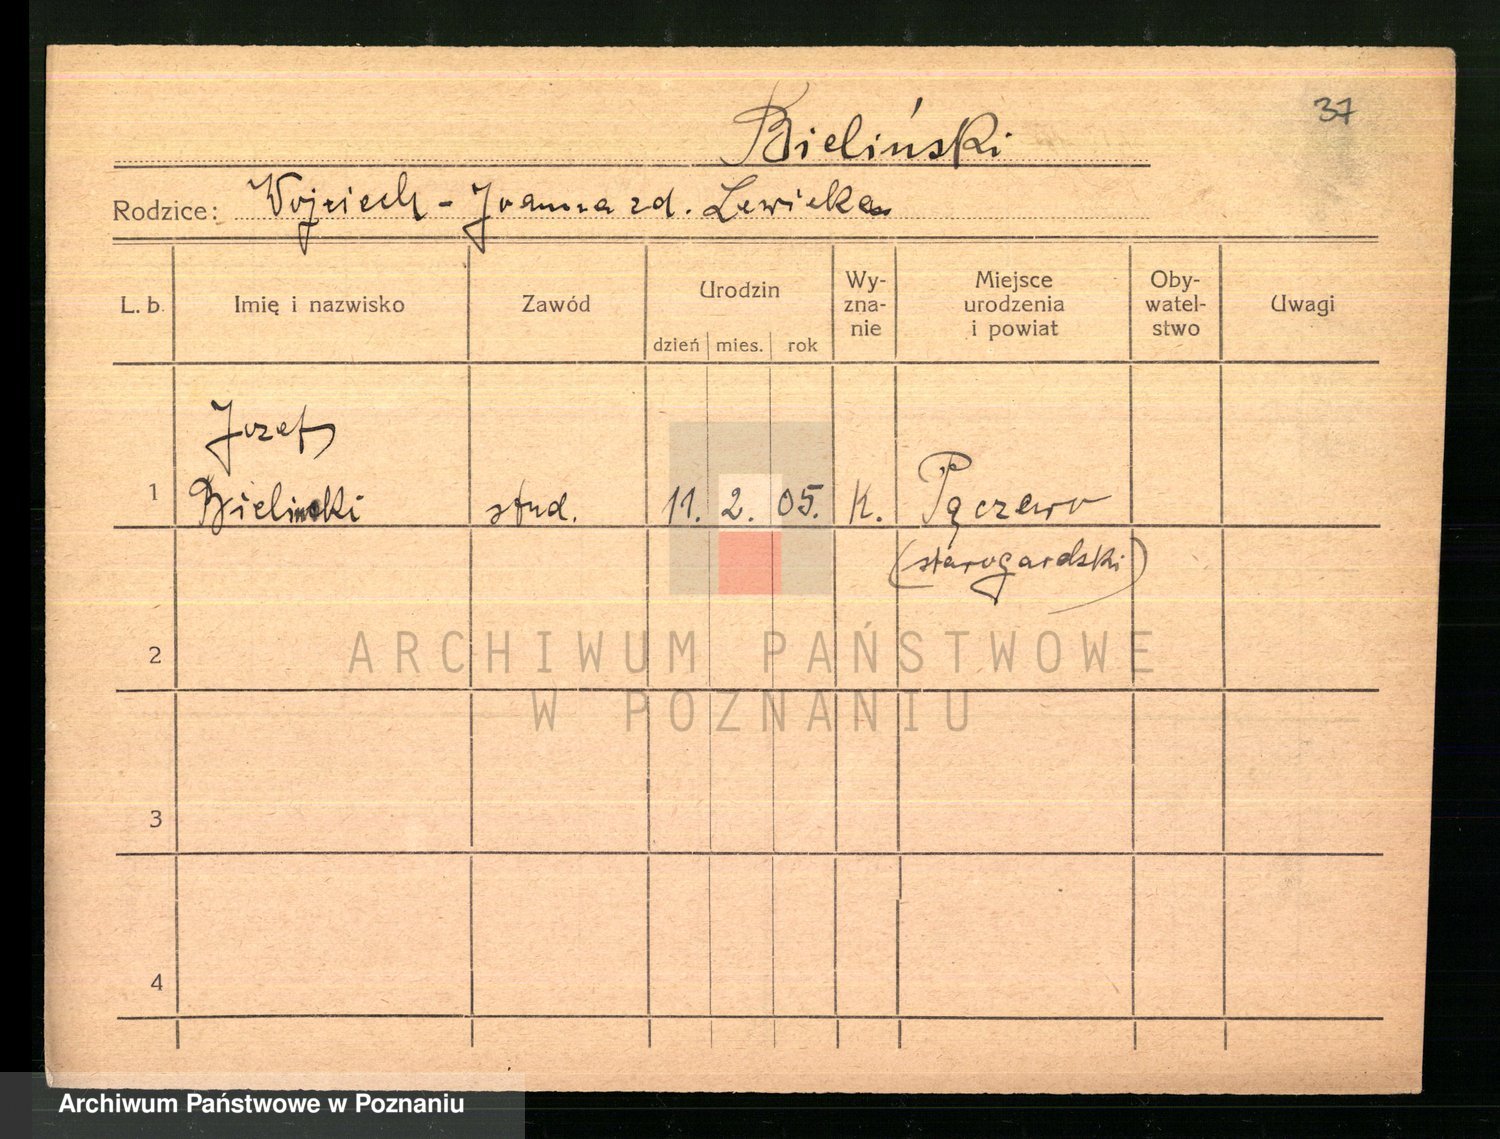 37
Bieliński
Rodzice: Wojciech - Joanna zd. Lewicka
L. b. Imię i nazwisko Zawód Urodzin dzień mies. rok Wy-zna-nie Miejsce urodzenia i powiat Oby-watel-stwo Uwagi
Jozef
1 Bielinski stud. 11. 2. 05. K. Pączewo
(starogardski)
2
ARCHIWUM PAŃSTWOWE
W POZNANIU
3
4
Archiwum Państwowe w Poznaniu